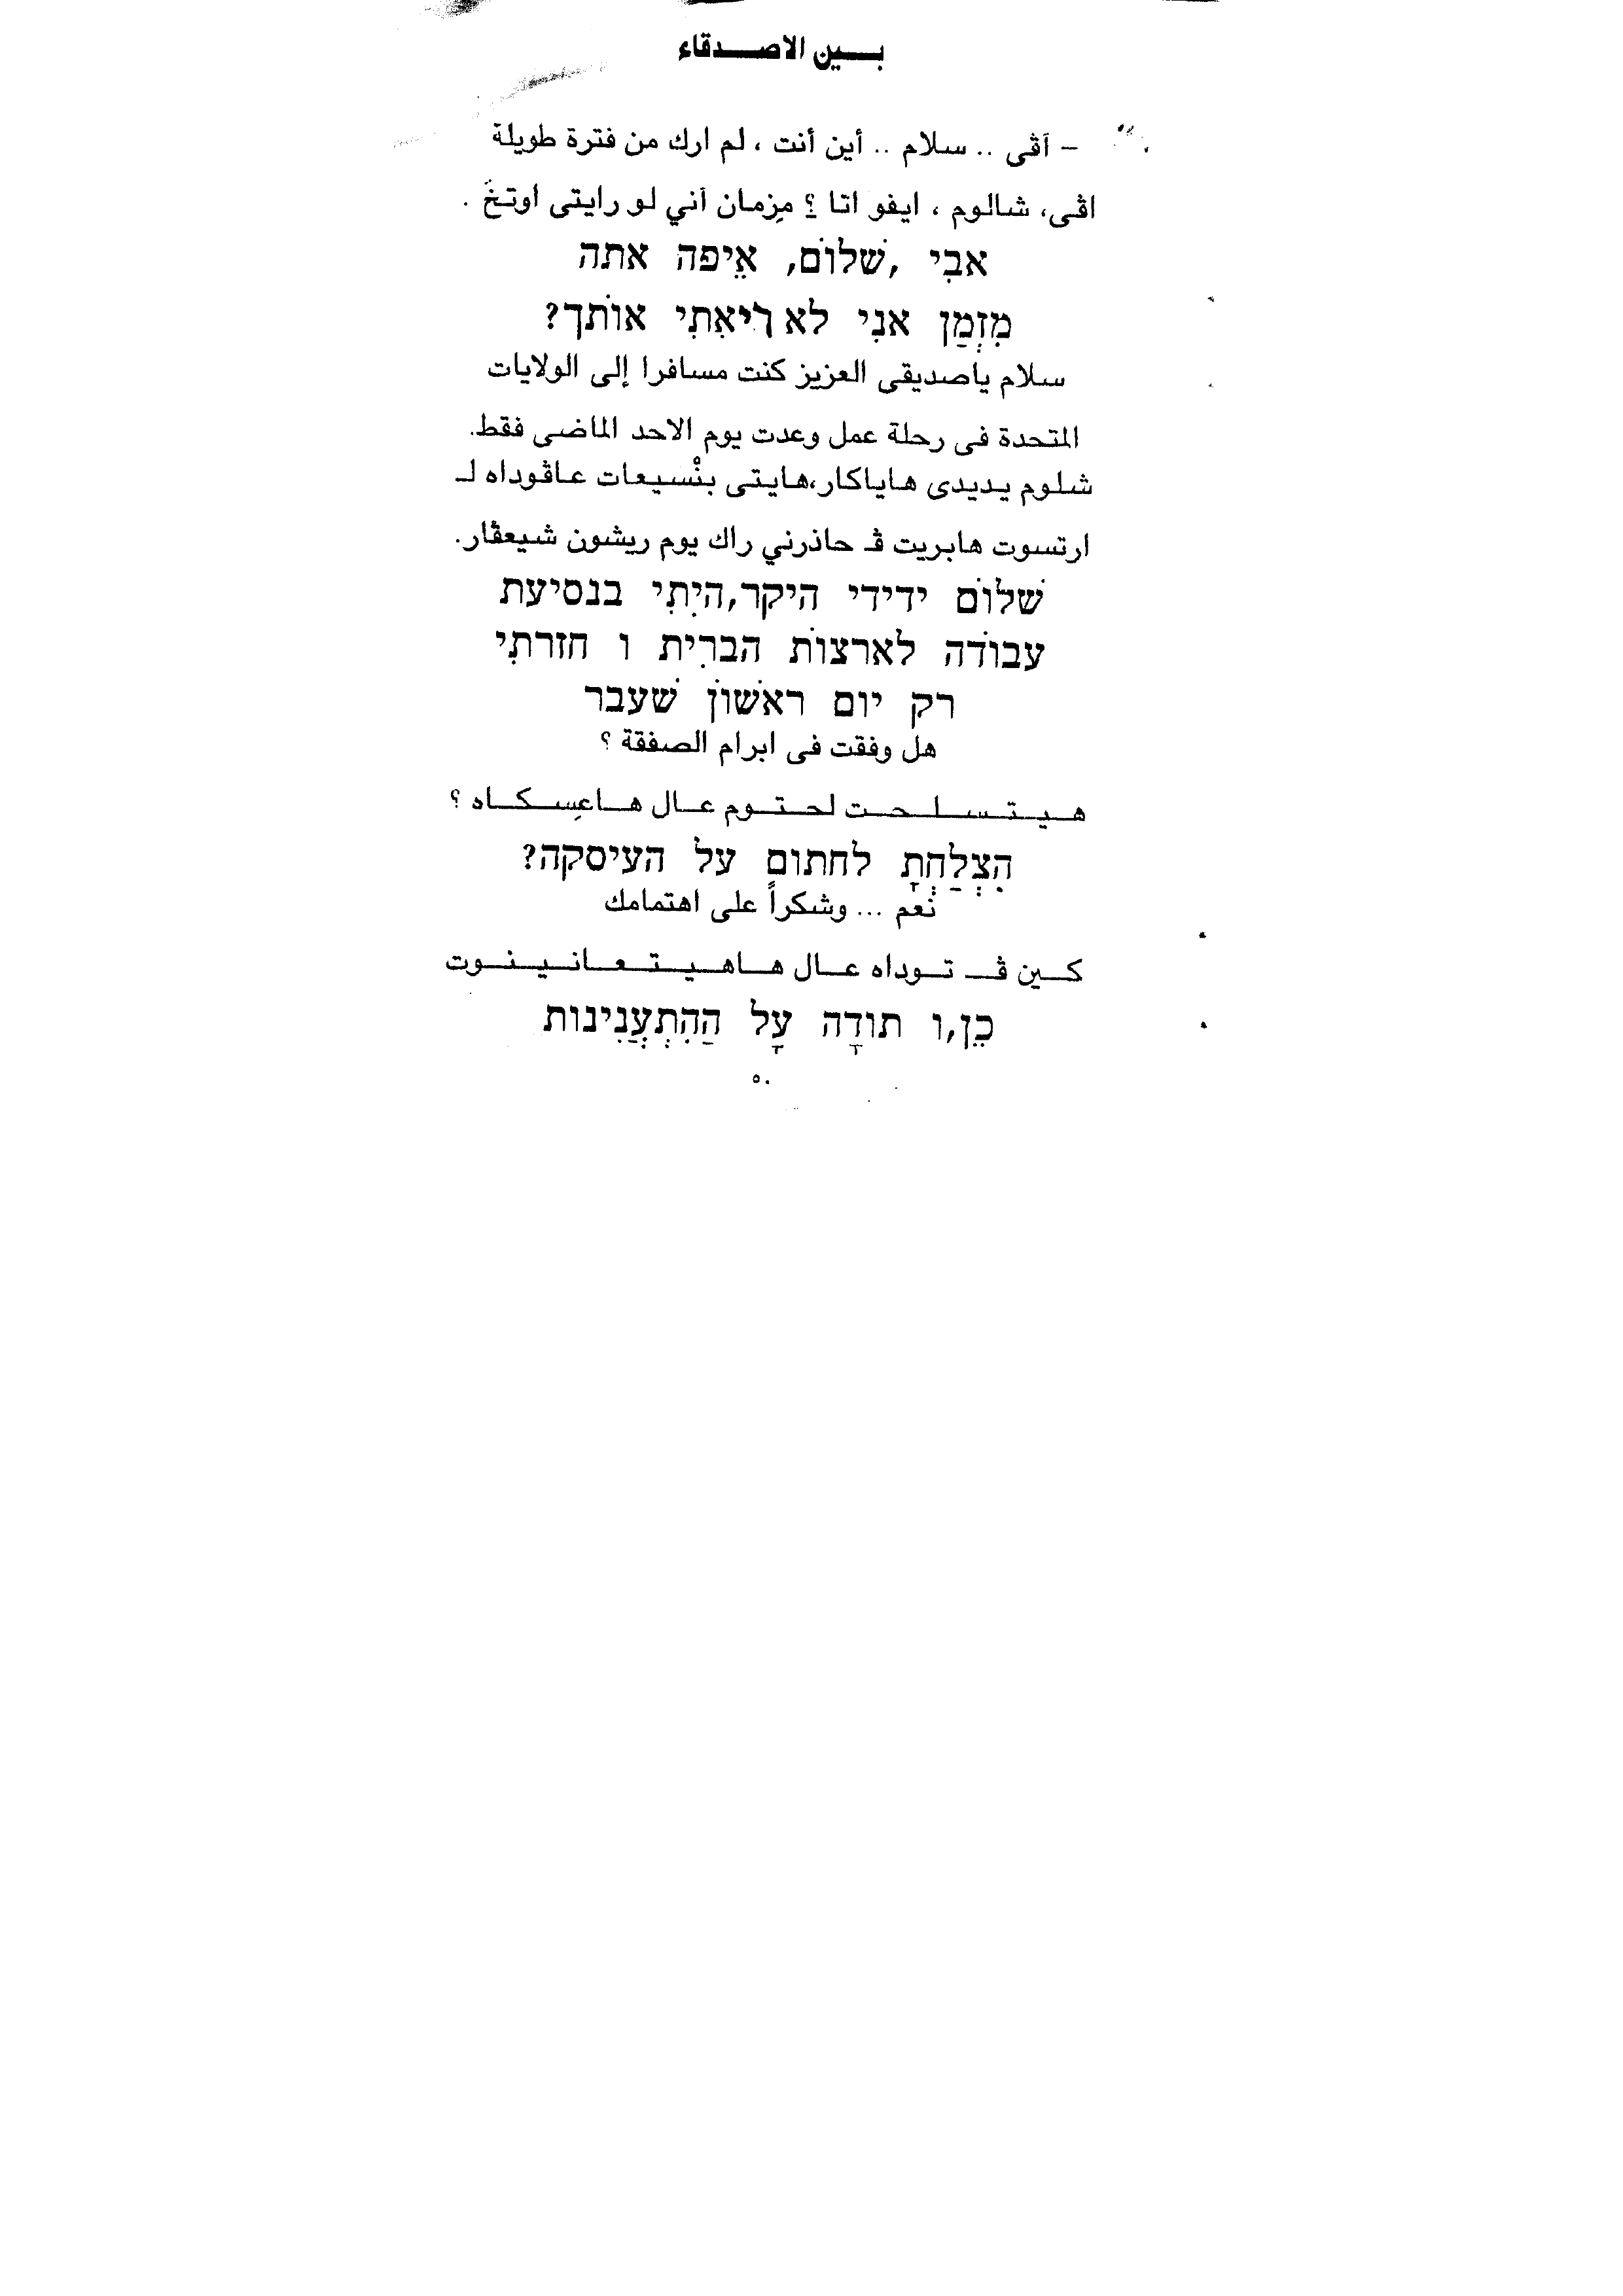 بـــين الاصـــدقاء
– آڤى .. سلام .. أين أنت ، لم ارك من فترة طويلة
اڤى، شالوم ، ايفو اتا ؟ مِزمان آني لو رايتى اوتخَ .
אבִי ,שׁלוֹם, אֵיפה אתה
מִזְמַן אנִי לא ריאִתִי אוֹתך?
سلام ياصديقى العزيز كنت مسافرا إلى الولايات
المتحدة فى رحلة عمل وعدت يوم الاحد الماضى فقط.
شلوم يديدى هاياكار،هايتى بنْسيعات عاڤوداه لـ
ارتسوت هابريت ڤـ حاذرني راك يوم ريشون شيعڤار.
שׁלוֹם ידידי היקר,היִתִי בנסיעת
עבוֹדה לארצוֹת הברִית ו חזרתִי
רק יום ראשׁוֹן שׁעבר
هل وفقت فى ابرام الصفقة ؟
هـيـتـسـلـحـت لحـتـوم عـال هـاعِسـكـاه ؟
הִצְלַחְתָ לחתום על העיסקה?
نعم ... وشكراً على اهتمامك
كـين ڤـ تـوداه عـال هـاهـيـتـعـانـيـنـوت
כֵן,ו תודָה עָל הַהִתְעֲנִינות
٥٠